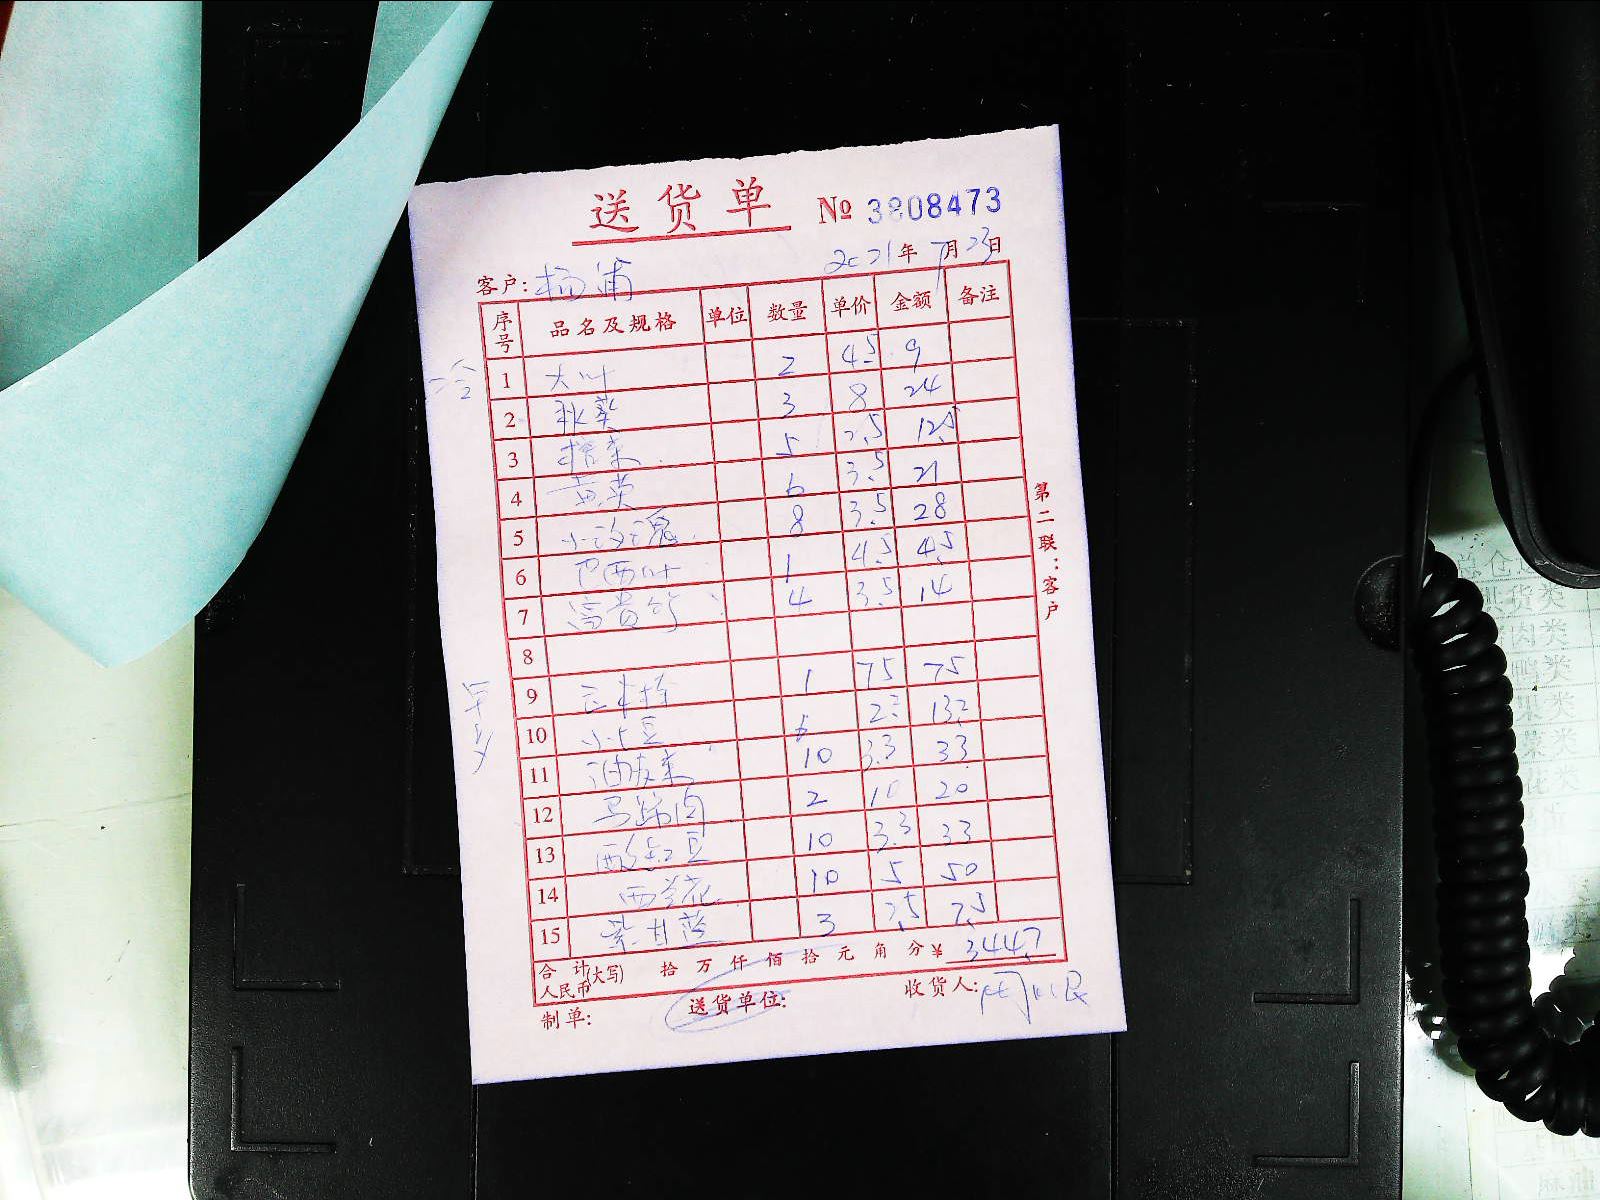 送货单 № 3808473
2021年7月23日
客户: 杨浦
序号 品名及规格 单位 数量 单价 金额 备注
冷
1 大叶 2 4.5 9
2 秋葵 3 8 24
3 5 2.5 12.5
4 黄英 6 3.5 21
5 小玫瑰 8 3.5 28
6 巴西叶 1 4.5 4.5
7 富贵竹 4 3.5 14
8
9 1 75 75
10 6 2.2 13.2
11 油麦菜 10 3.3 33
12 马蹄肉 2 10 20
13 酸豇豆 10 3.3 33
14 西兰花 10 5 50
15 紫甘蓝 3 2.5 7.5
合计人民币(大写) 拾 万 仟 佰 拾 元 角 分 ¥ 344.7
制单: 送货单位: 收货人:
第二联:客户
肉类
鸭类
果类
菜类